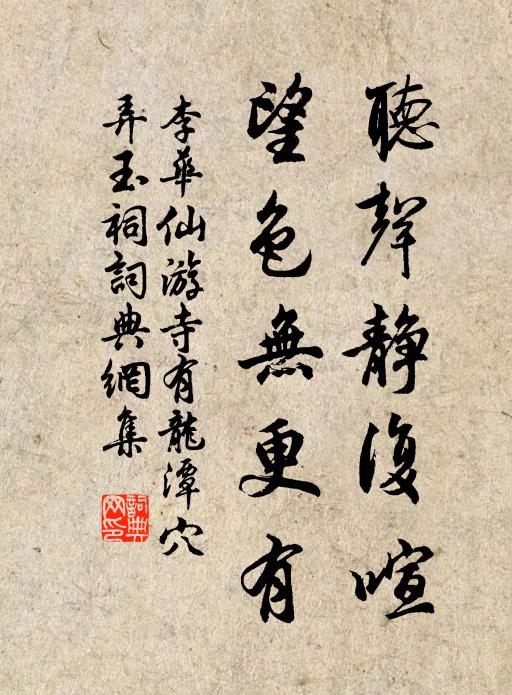 聽聲靜復喧
望色無更有
李華仙游寺有龍潭穴
弄玉祠詞典網集
詞典
网印